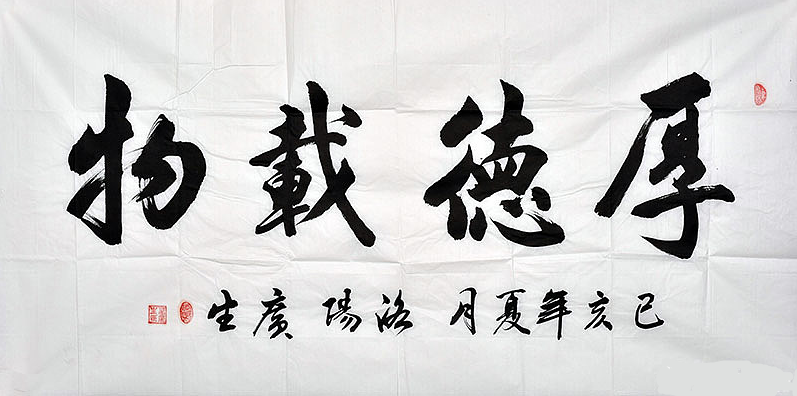 厚德載物
己亥年夏月洛陽廣生